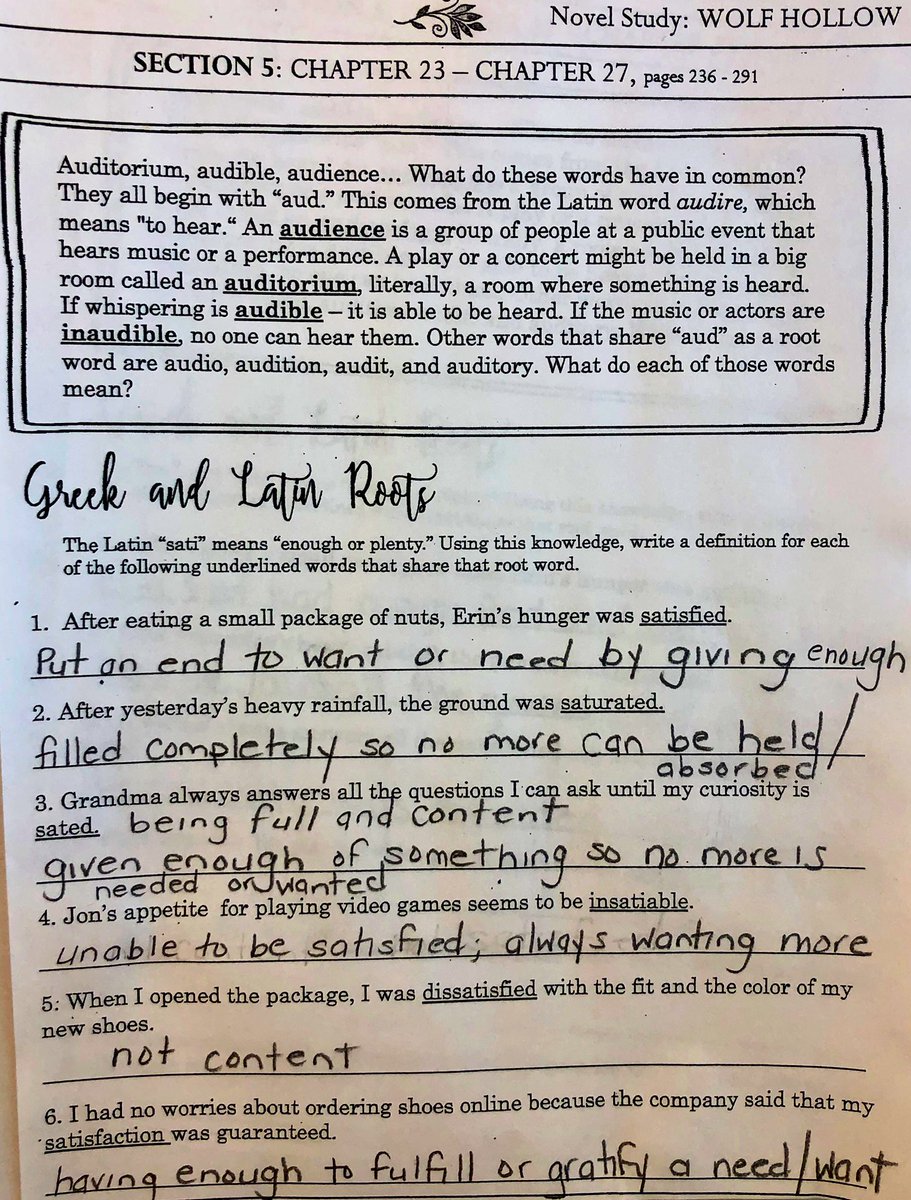 Novel Study: WOLF HOLLOW
SECTION 5: CHAPTER 23 – CHAPTER 27, pages 236 - 291
Auditorium, audible, audience... What do these words have in common?
They all begin with “aud.” This comes from the Latin word audire, which
means "to hear.“ An audience is a group of people at a public event that
hears music or a performance. A play or a concert might be held in a big
room called an auditorium, literally, a room where something is heard.
If whispering is audible – it is able to be heard. If the music or actors are
inaudible, no one can hear them. Other words that share “aud” as a root
word are audio, audition, audit, and auditory. What do each of those words
mean?
Greek and Latin Roots
The Latin “sati” means “enough or plenty.” Using this knowledge, write a definition for each
of the following underlined words that share that root word.
1. After eating a small package of nuts, Erin’s hunger was satisfied.
Put an end to want or need by giving enough
2. After yesterday’s heavy rainfall, the ground was saturated.
filled completely so no more can be held/
absorbed
3. Grandma always answers all the questions I can ask until my curiosity is
sated. being full and content
given enough of something so no more is
needed or wanted
4. Jon’s appetite for playing video games seems to be insatiable.
unable to be satisfied; always wanting more
5: When I opened the package, I was dissatisfied with the fit and the color of my
new shoes.
not content
6. I had no worries about ordering shoes online because the company said that my
satisfaction was guaranteed.
having enough to fulfill or gratify a need/want